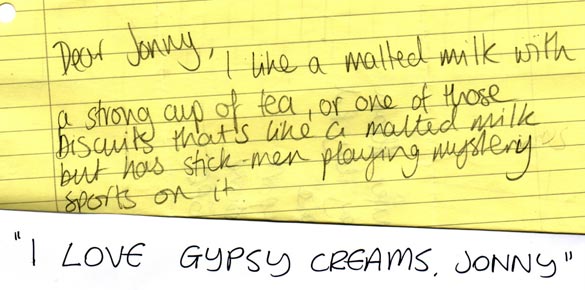 Dear Jonny, I like a malted milk with
a strong cup of tea, or one of those
biscuits that's like a malted milk
but has stick-men playing mystery
sports on it
"I LOVE GYPSY CREAMS, JONNY"